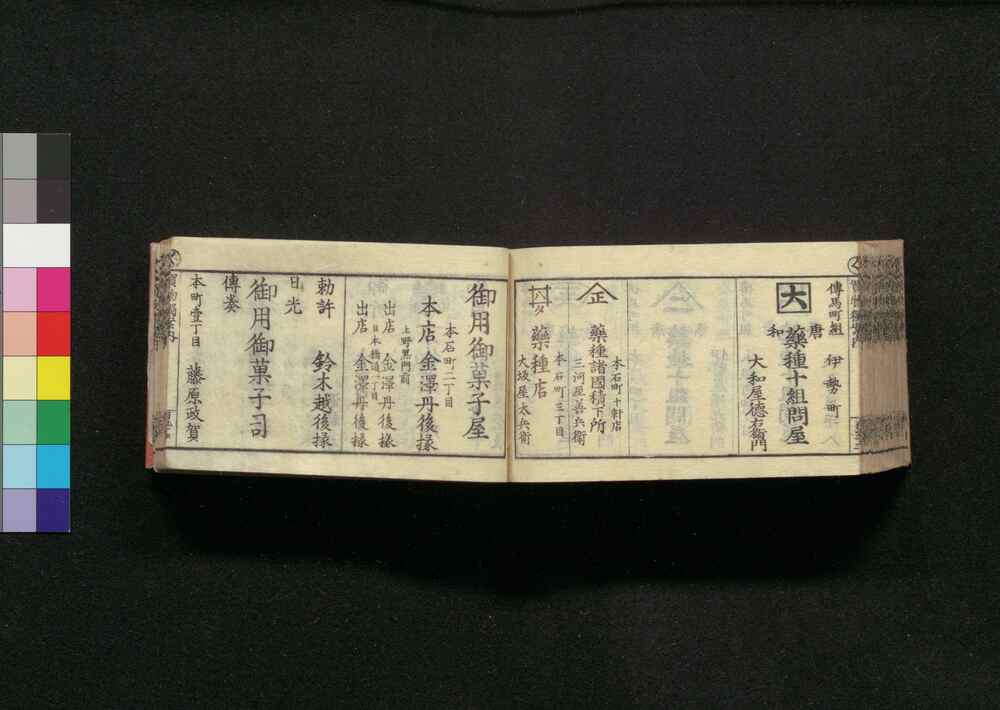 傳馬町組
伊勢町
大
唐
和
藥種十組問屋
大和屋徳右衛門
本石町十軒店
藥種諸國積下所
本石町三丁目
三河屋善兵衛
藥種店
大坂屋太兵衛
御用御菓子屋
本石町二丁目
本店 金澤丹後掾
上野黒門前
出店 金澤丹後掾
日本橋通二丁目
出店 金澤丹後掾
勅許 鈴木越後掾
日光
御用御菓子司
傳奏
本町壹丁目 藤原政賀